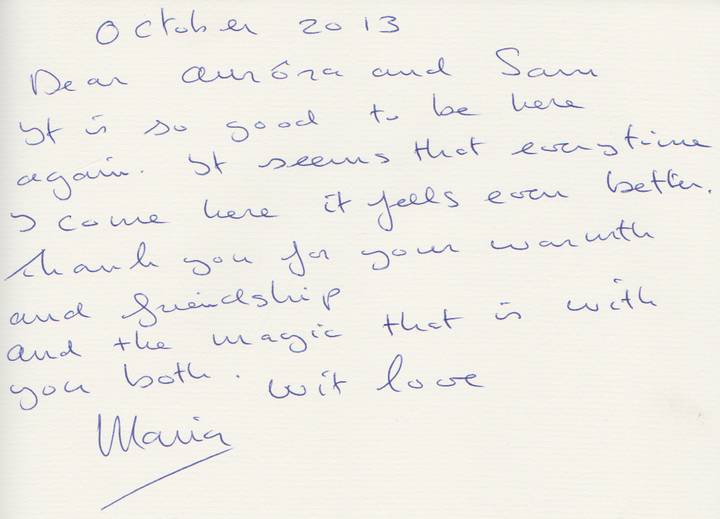 October 2013
Dear Auróra and Sam
It is so good to be here
again. It seems that everytime
I come here it feels even better.
thank you for your warmth
and friendship
and the magic that is with
you both. wit love
Maria